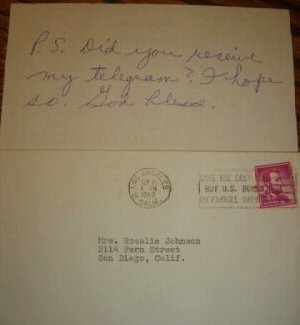 P.S. Did you receive
my telegram? I hope
so. God bless.
LOS ANGELES
CALIF.
BUY U.S. BONDS
ON PAYROLL SAVINGS
Mrs. Rosalie Johnson
2114 Fern Street
San Diego, Calif.